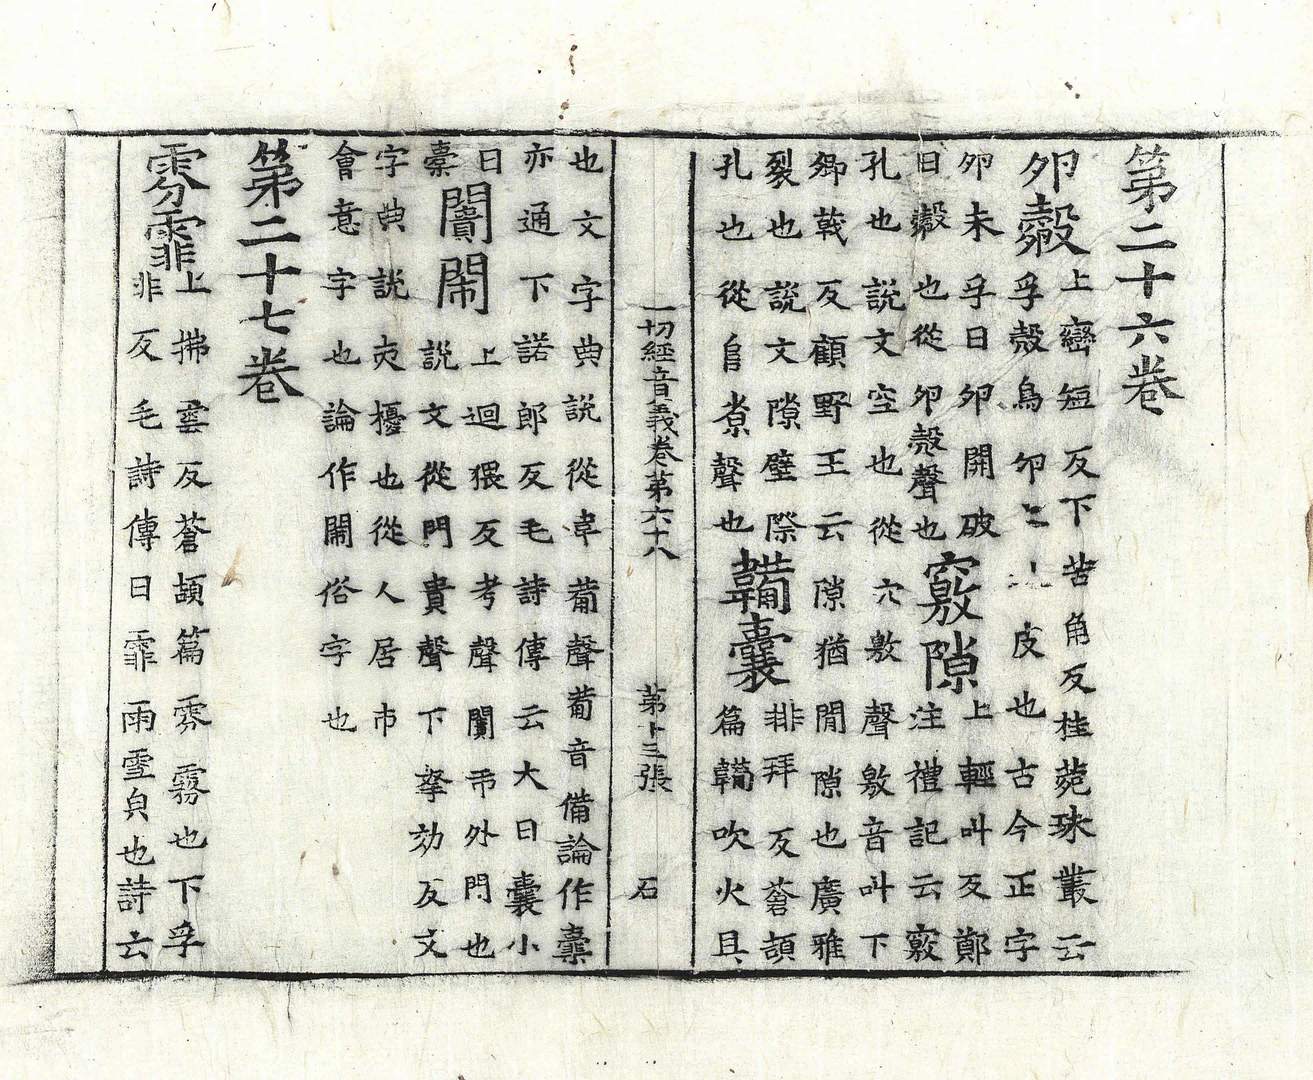 第二十六卷
夘㲉上巒短反下苦角反桂菀珠叢云
孚㲉鳥夘皮也古今正字
夘未孚曰夘開破
曰㲉也從夘㱿聲也
竅隙上輕叫反鄭
注禮記云竅
孔也說文空也從穴敫聲敫音叫下
卿戟反顧野王云隙猶閒隙也廣雅
裂也說文隙壁際
孔也從𨸏𡭴聲也
鞴囊排拜反蒼頡
篇鞴吹火具
一切經音義卷第六十八 第十三張 石
也文字典說從韋𤰇聲𤰇音備論作橐
亦通下諾郎反毛詩傳云大曰囊小
曰
橐
闠閙上迴猥反考聲闠市外門也
說文從門貴聲下拏効反文
字典說㚻擾也從人居市
會意字也論作閙俗字也
第二十七卷
雰霏上拂雲反蒼頡篇雰霧也下孚
非反毛詩傳曰霏雨雪皃也詩云